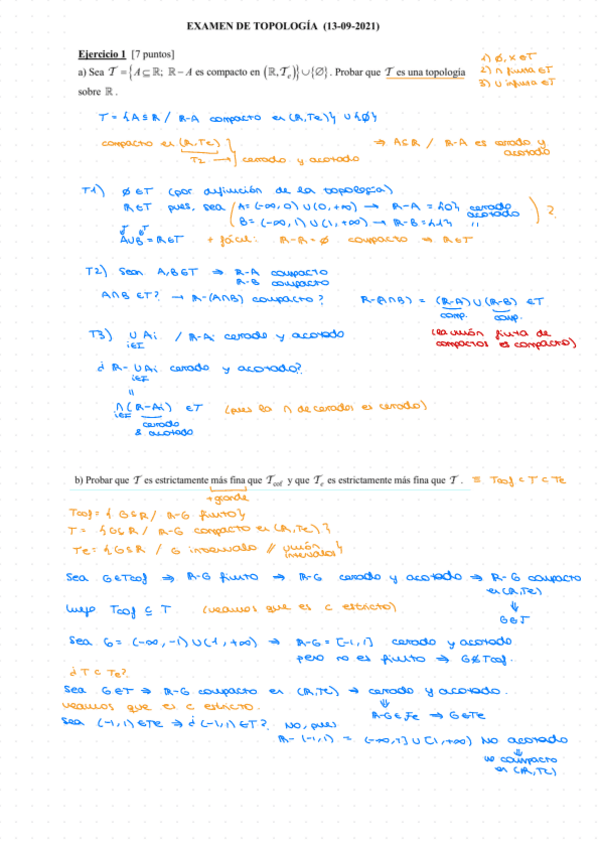 EXAMEN DE TOPOLOGÍA (13-09-2021)
Ejercicio 1 [7 puntos]
a) Sea 𝒯 = {A ⊆ ℝ; ℝ − A es compacto en (ℝ, 𝒯e)} ∪ {∅}. Probar que 𝒯 es una topología
sobre ℝ.
1) ∅, X ∈ T
2) ∩ finita ∈ T
3) ∪ infinita ∈ T
T = {A ⊆ ℝ / ℝ-A compacto en (ℝ,Te)} ∪ {∅}
compacto en (ℝ,Te)
T2 → cerrado y acotado
⇒ A ⊆ ℝ / ℝ-A es cerrado y acotado
T1) ∅ ∈ T (por definición de la topología)
ℝ ∈ T pues, sea A = (-∞, 0) ∪ (0, +∞) → ℝ-A = {0} cerrado acotado
B = (-∞, 1) ∪ (1, +∞) → ℝ-B = {1} " ?
A ∪ B = ℝ ∈ T + fácil: ℝ-ℝ = ∅ compacto ⇒ ℝ ∈ T
T2) Sean A,B ∈ T ⇒ ℝ-A compacto
ℝ-B compacto
A∩B ∈ T? → ℝ-(A∩B) compacto? ℝ-(A∩B) = (ℝ-A) ∪ (ℝ-B) ∈ T
comp. comp.
(la unión finita de compactos es compacto)
T3) ∪ Ai / ℝ-Ai cerrado y acotado
i∈I
¿ ℝ- ∪ Ai cerrado y acotado?
i∈I
"
∩ (ℝ-Ai) ∈ T (pues la ∩ de cerrados es cerrado)
i∈I
cerrado & acotado
b) Probar que 𝒯 es estrictamente más fina que 𝒯cof y que 𝒯e es estrictamente más fina que 𝒯. ≡ Tcof ⊂ T ⊂ Te
+ grande
Tcof = { G ⊆ ℝ / ℝ-G finito}
T = {G ⊆ ℝ / ℝ-G compacto en (ℝ,Te)}
Te = {G ⊆ ℝ / G intervalo // unión intervalos}
Sea G ∈ Tcof ⇒ ℝ-G finito ⇒ ℝ-G cerrado y acotado ⇒ ℝ-G compacto
en (ℝ,Te)
⇓
G ∈ T
luego Tcof ⊆ T (veamos que es ⊂ estricto)
Sea G = (-∞, -1) ∪ (1, +∞) ⇒ ℝ-G = [-1,1] cerrado y acotado
pero no es finito ⇒ G ∉ Tcof.
¿T ⊂ Te?
Sea G ∈ T ⇒ ℝ-G compacto en (ℝ,Te) → cerrado y acotado.
⇓
ℝ-G ∈ Fe ⇒ G ∈ Te
veamos que es ⊂ estricto.
Sea (-1,1) ∈ Te ⇒ ¿(-1,1) ∈ T? No, pues
ℝ-(-1,1) = (-∞,-1] ∪ [1,+∞) No acotado
⇓
no compacto
en (ℝ,Te)